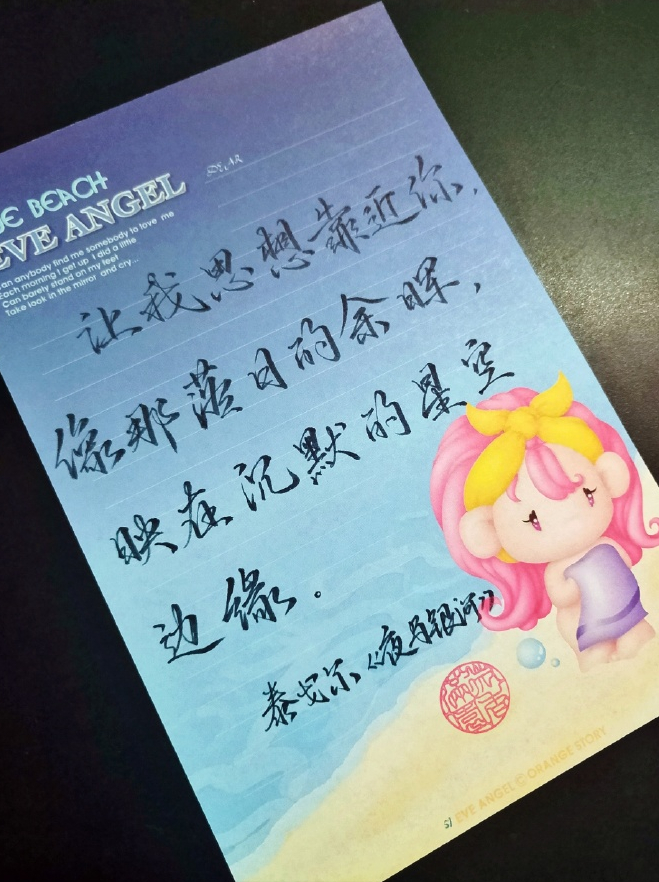 BEACH
EVE ANGEL
can anybody find me somebody to love me
Each morning I get up I did a little
Can barely stand on my feet
Take look in the mirror and cry...
DEAR
让我思想靠近你,
像那落日的余晖,
映在沉默的星空
边缘.
泰戈尔《夜与银河》
51 EVE ANGEL C ORANGE STORY